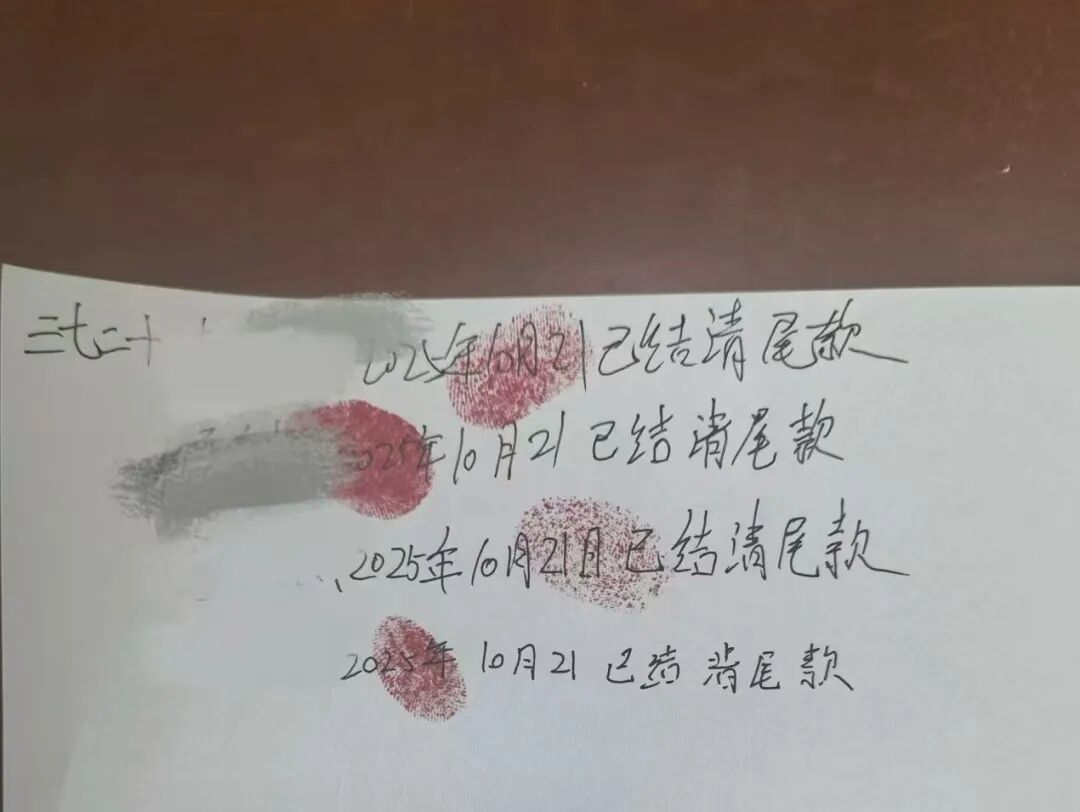 三七二十 2025年10月21已结清尾款
2025年10月21已结消尾款
2025年10月21日已结清尾款
2025年10月21已结背尾款